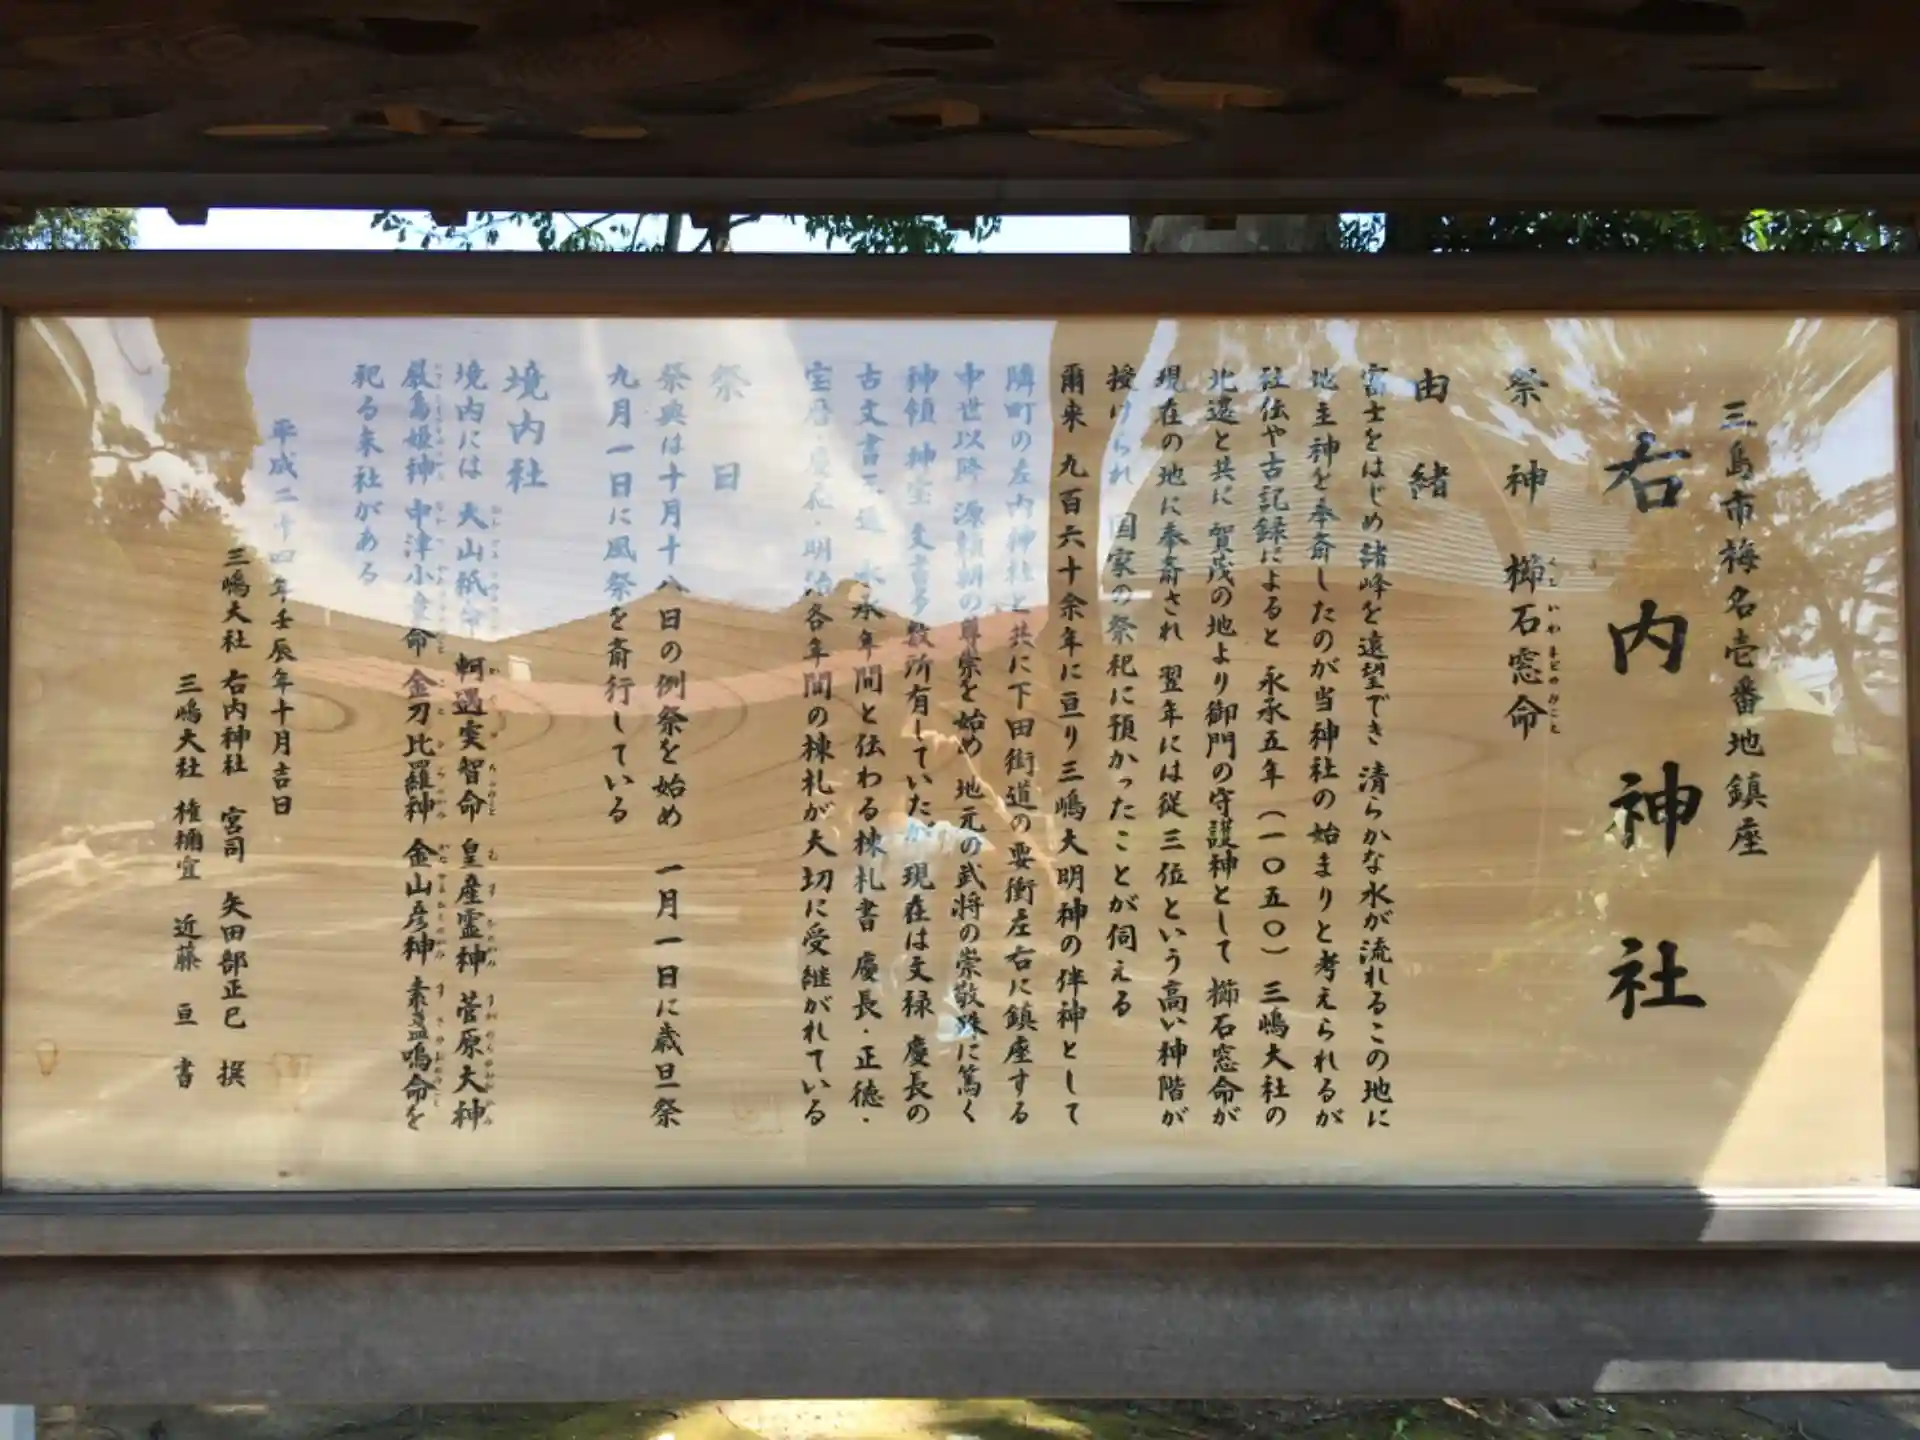 三島市梅名壱番地鎮座
右内神社
祭神 櫛石窓命
くし いわ まどのみこと
由緒
富士をはじめ諸峰を遠望でき 清らかな水が流れるこの地に
地主神を奉斎したのが当神社の始まりと考えられるが
社伝や古記録によると 永承五年(一〇五〇)三嶋大社の
北遷と共に 賀茂の地より御門の守護神として 櫛石窓命が
現在の地に奉斎され 翌年には従三位という高い神階が
授けられ 国家の祭祀に預かったことが伺える
爾来 九百六十余年に亘り三嶋大明神の伴神として
隣町の左内神社と共に下田街道の要衝左右に鎮座する
中世以降 源頼朝の尊崇を始め 地元の武将の崇敬殊に篤く
神領 神宝 文書多数所有していたが 現在は文禄 慶長の
古文書三通 永承年間と伝わる棟札書 慶長・正徳・
宝暦・慶応・明治各年間の棟札が大切に受継がれている
祭日
祭典は十月十八日の例祭を始め 一月一日に歳旦祭
九月一日に風祭を斎行している
境内社
境内には 大山祇命 軻遇突智命 皇産霊神 菅原大神
厳島姫神 中津小童命 金刀比羅神 金山彦神 素盞嗚命を
祀る末社がある
平成二十四年壬辰年十月吉日
三嶋大社 右内神社 宮司 矢田部正巳 撰
三嶋大社 権禰宜 近藤 亘 書